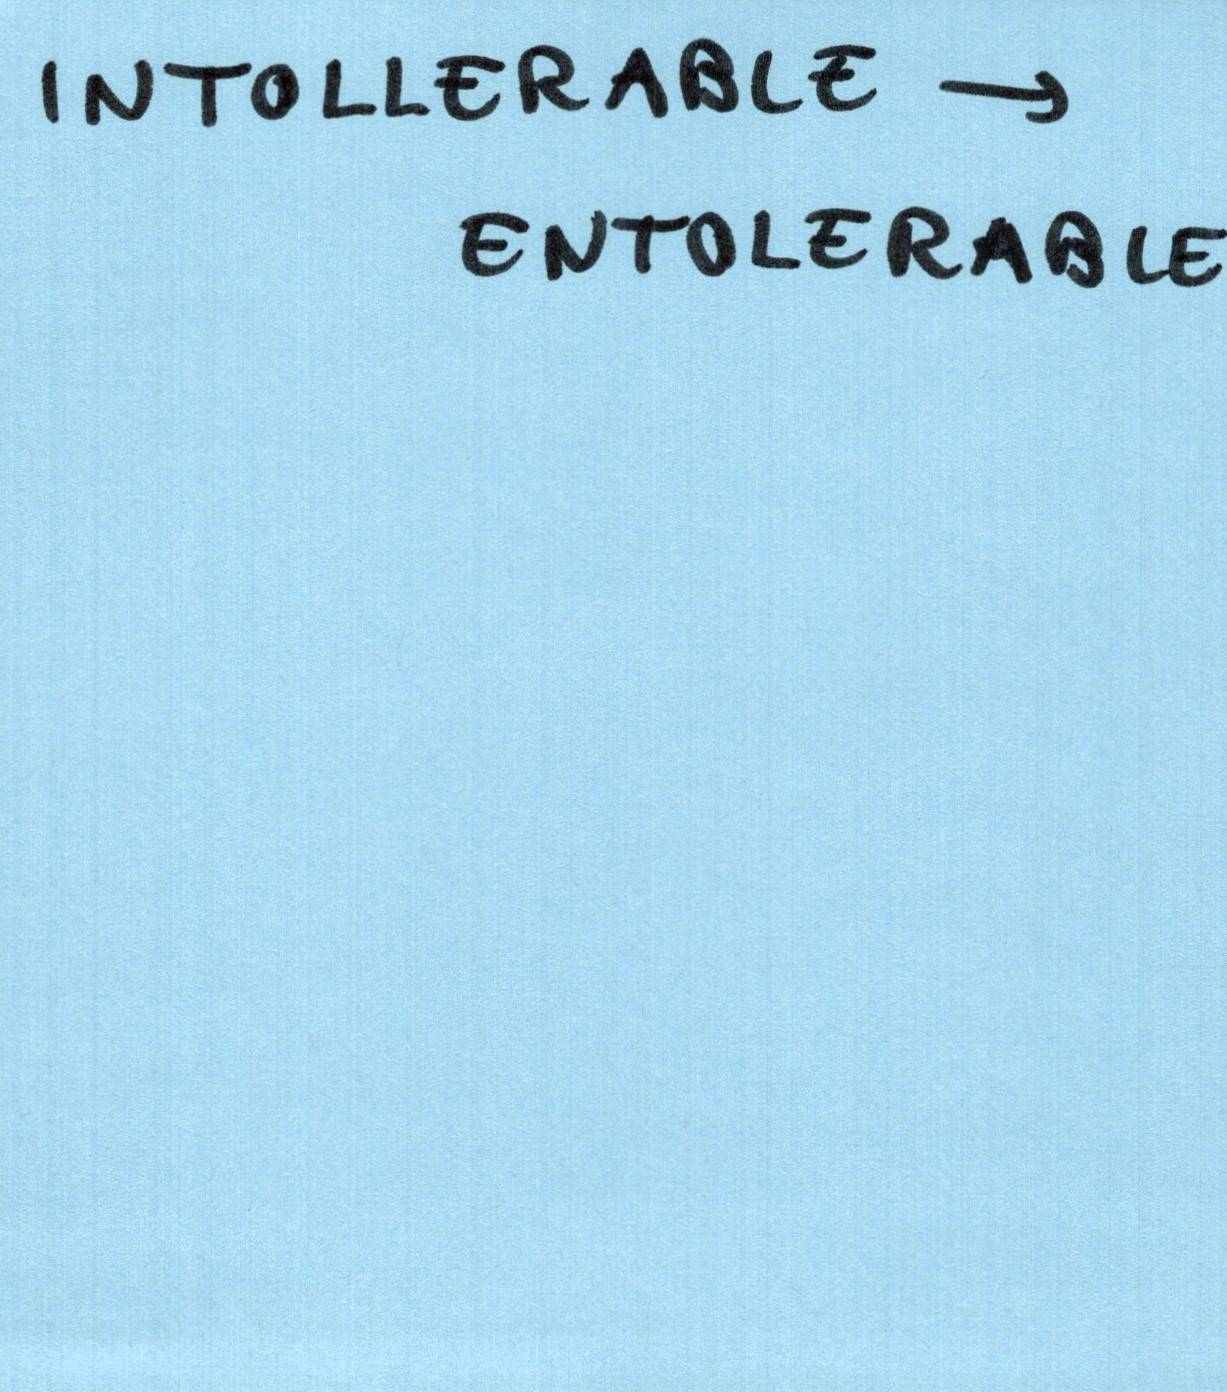 INTOLLERABLE →
ENTOLERABLE